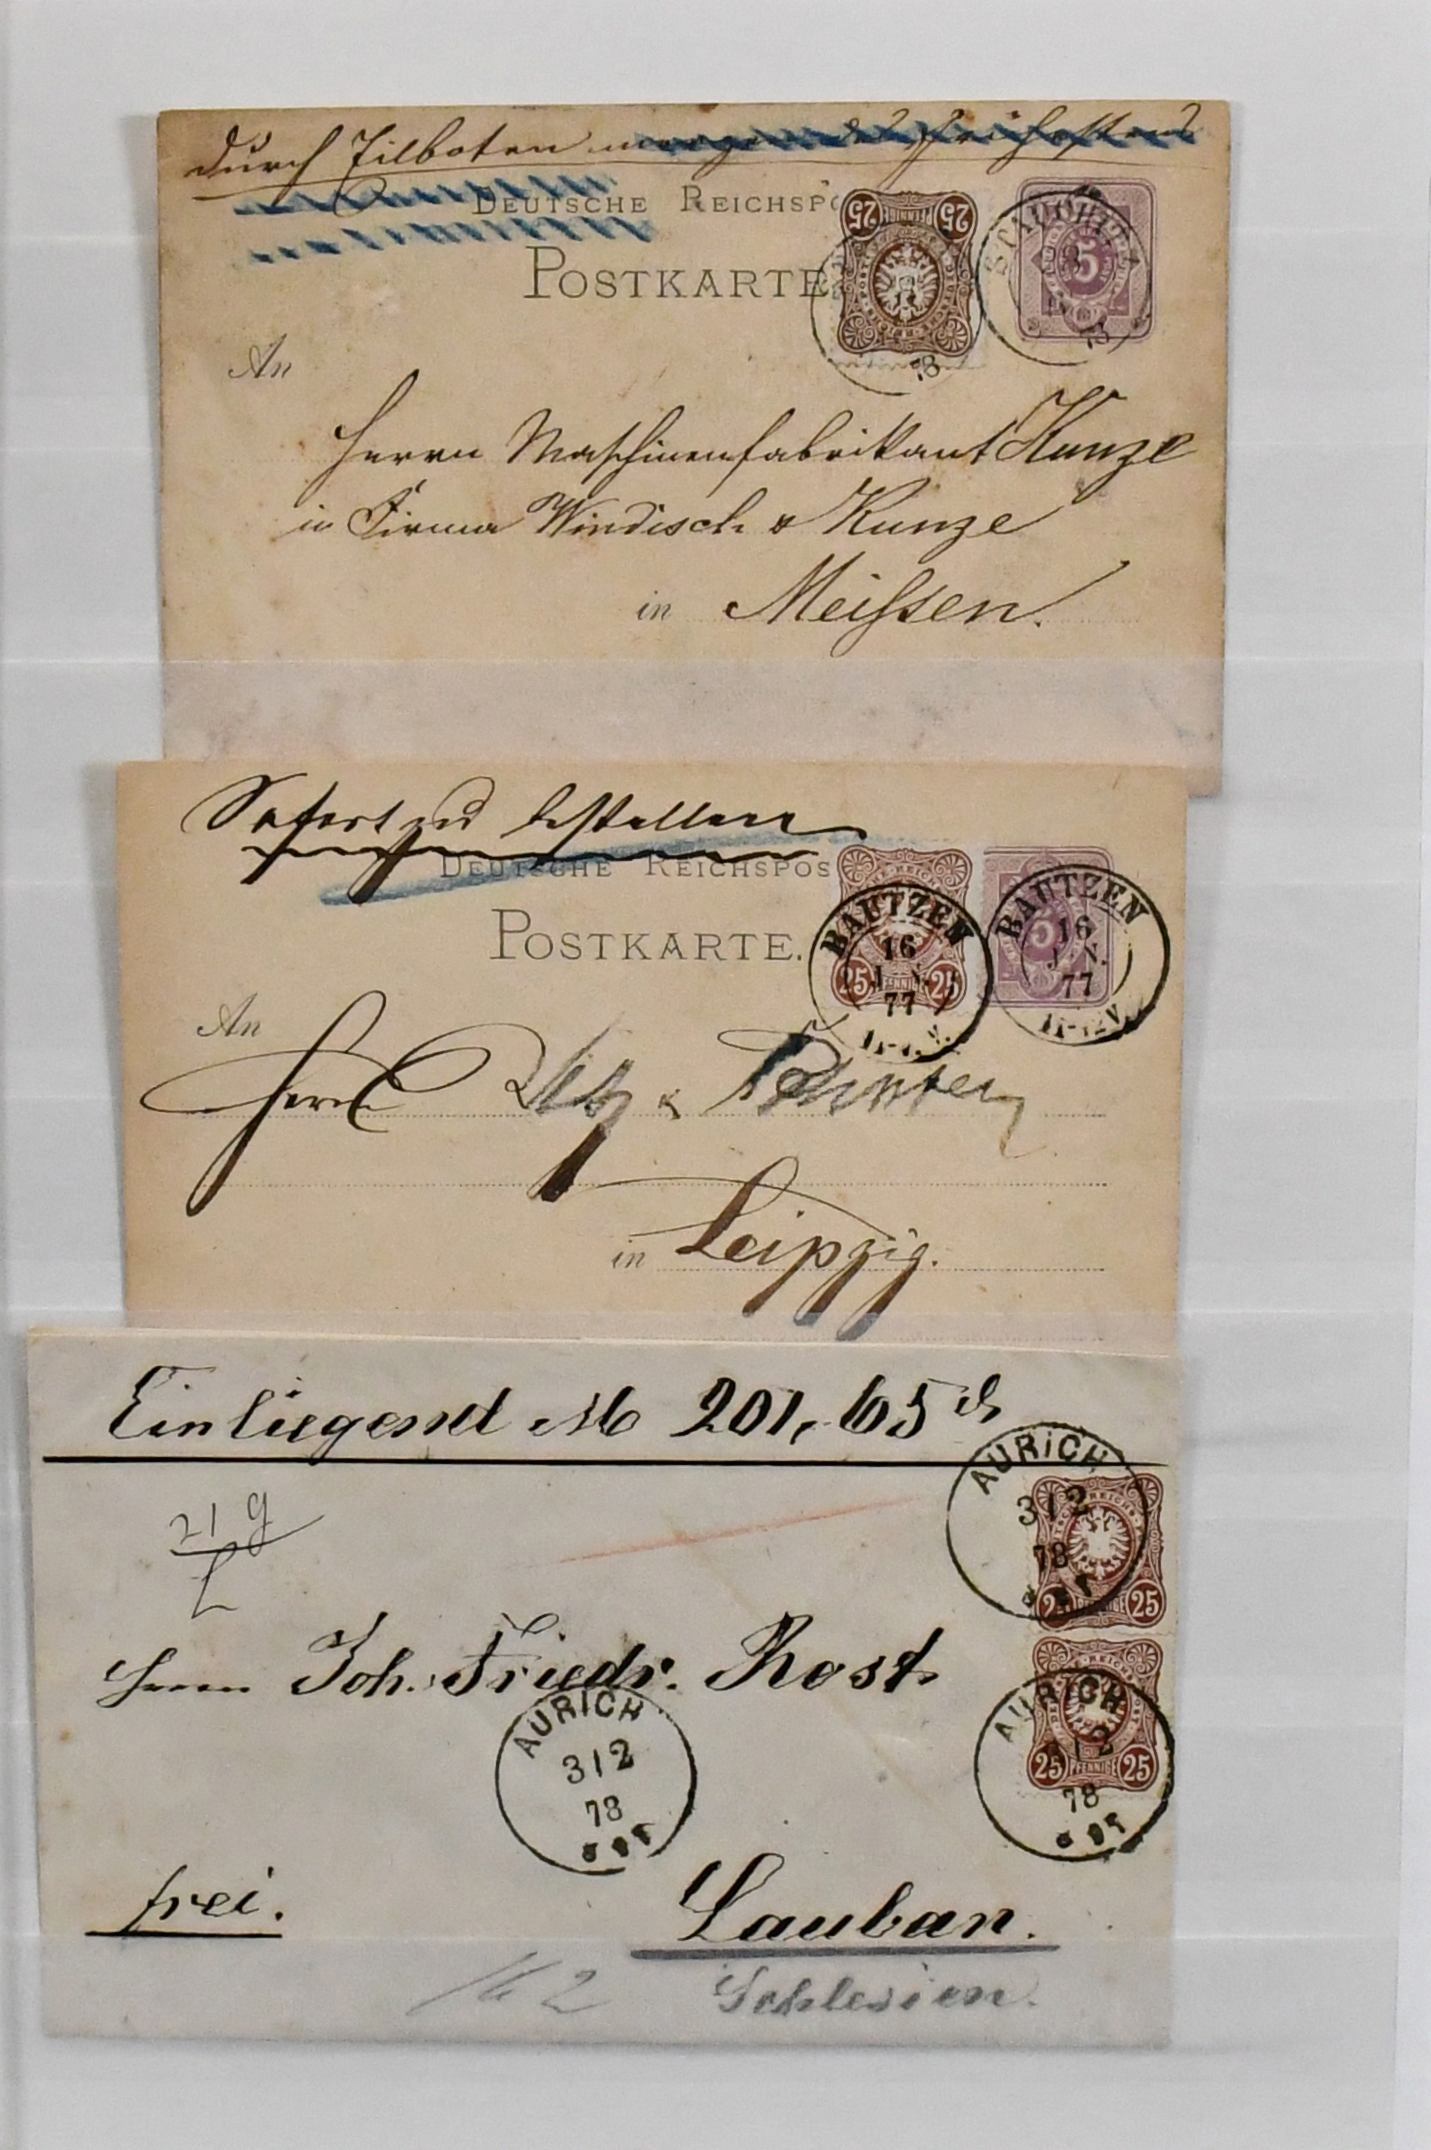 durch Eilboten
DEUTSCHE REICHSPO
POSTKARTE
25 PFENNIG 25
5
78
78
An
Herrn Maschinenfabrikant Kunze
in Firma Windisch & Kunze
in Meißsen.
Sofort zu bestellen
DEUTSCHE REICHSPOS
POSTKARTE.
BAUTZEN
16
77
25 PFENNIGE 25
BAUTZEN
16
77
11-12V.
5
An
Herrn
in Leipzig.
Einliegend M 201,65
21 g
AURICH
3/2
78
25 PFENNIGE 25
Herrn Joh. Friedr. Rost
AURICH
3/2
78
AURICH
78
25 PFENNIGE 25
frei.
Lauban.
Schlesien.